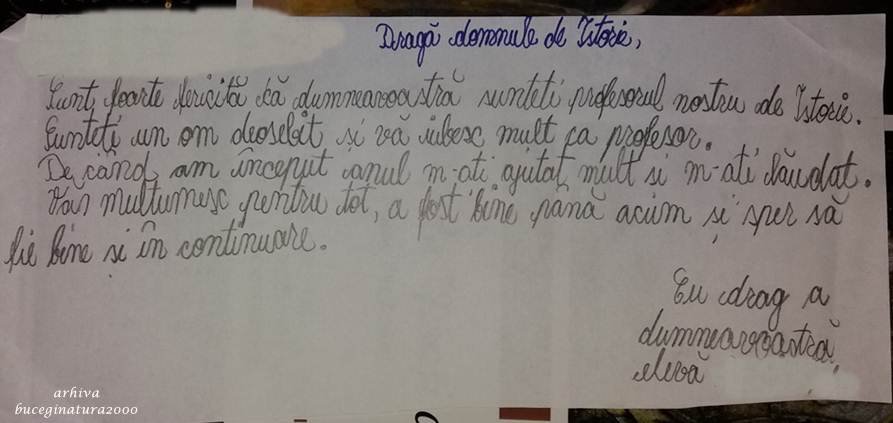 Dragă domnule de Istorie,
Sunt foarte fericită că dumneavoastră sunteti profesorul nostru de Istorie.
Sunteti un om deosebit și vă iubesc mult ca profesor.
De când am început anul m-ati ajutat mult si m-ati lăudat.
multumesc pentru tot, a fost bine până acum și sper să
fie bine și în continuare.
Cu drag a
dumneavoastră
elevă
arhiva
buceginatura2000